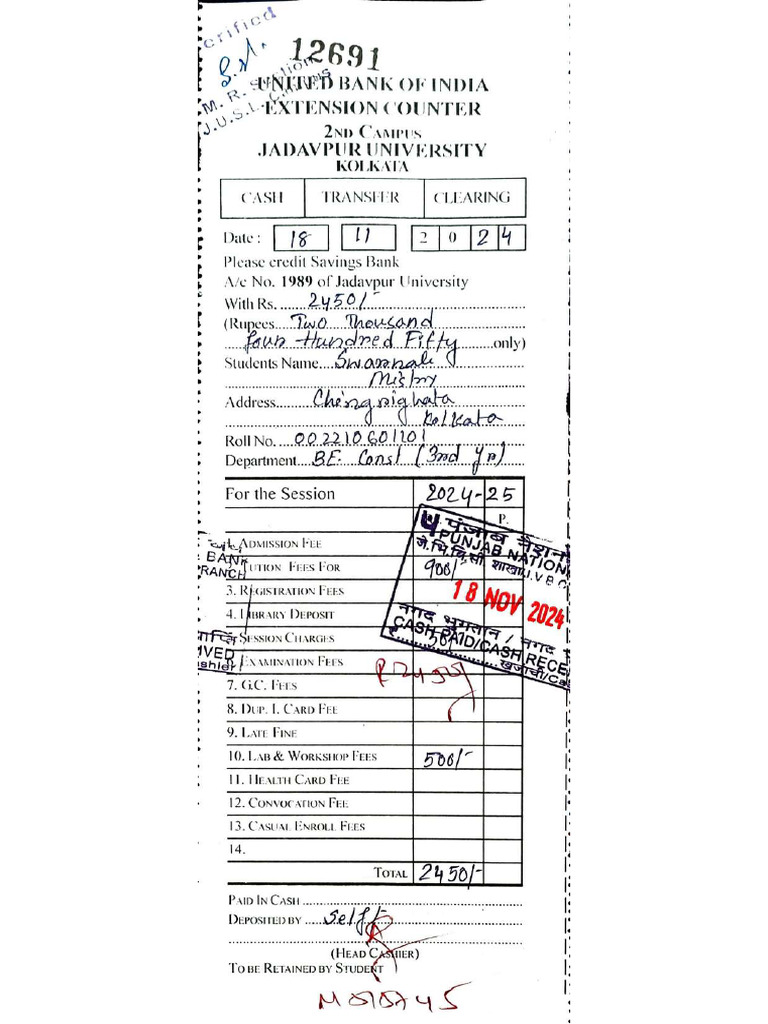 erified
12691
M. R. Section
J.U.S.L. Campus
UNITED BANK OF INDIA
EXTENSION COUNTER
2ND CAMPUS
JADAVPUR UNIVERSITY
KOLKATA
CASH TRANSFER CLEARING
Date : 18 11 2024
Please credit Savings Bank
A/c No. 1989 of Jadavpur University
With Rs. 2450/-
(Rupees Two Thousand
four Hundred Fifty only)
Students Name Swarnali
Mistry
Address Chingrighata
Kolkata
Roll No. 002210601101
Department B.E. Const (3rd Yr)
For the Session 2024-25
P.
ADMISSION FEE
TUTION FEES FOR 900/-
3. REGISTRATION FEES
4. LIBRARY DEPOSIT
SESSION CHARGES
EXAMINATION FEES
7. G.C. FEES
8. DUP. I. CARD FEE
9. LATE FINE
10. LAB & WORKSHOP FEES 500/-
11. HEALTH CARD FEE
12. CONVOCATION FEE
13. CASUAL ENROLL FEES
14.
TOTAL 2450/-
पंजाब नैशन
PUNJAB NATION
18 NOV 2024
नगद भुगतान / नगद
CASH PAID/CASH RECE
BANK
RANCH
VED
shier
PAID IN CASH
DEPOSITED BY Self
(HEAD CASHIER)
TO BE RETAINED BY STUDENT